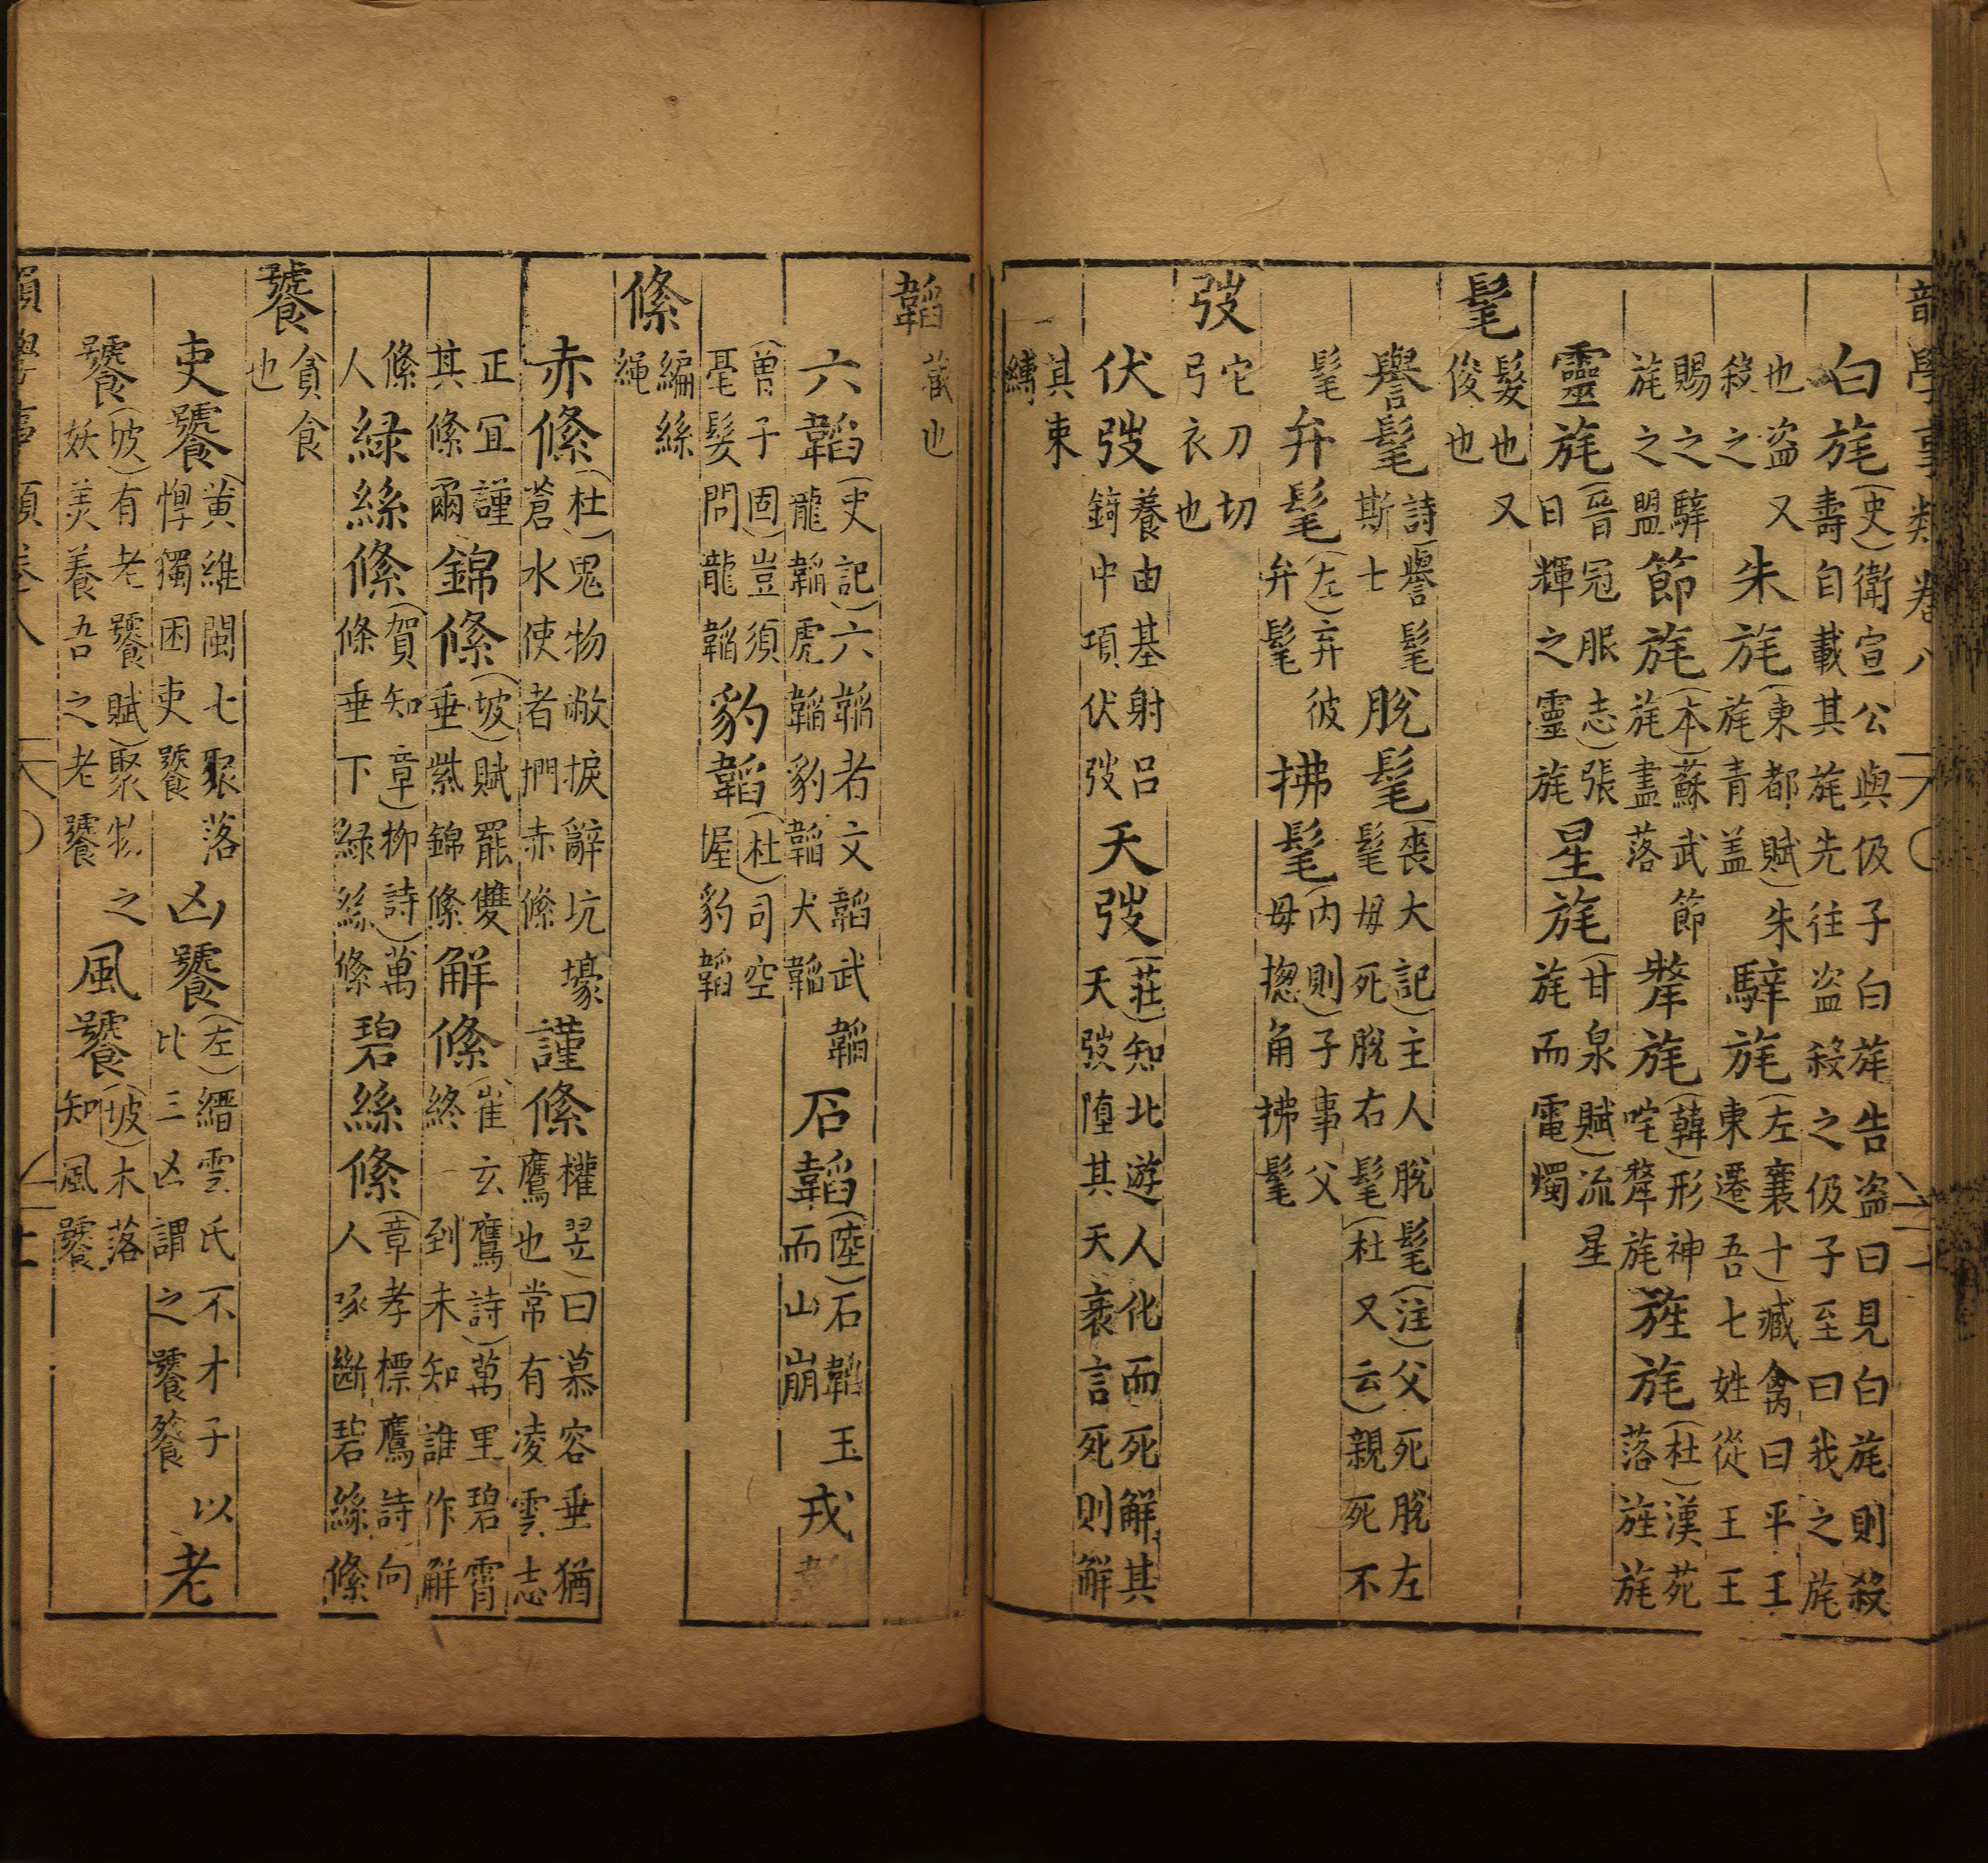 學事類卷八
白旄(史)衛宣公與伋子白旄告盗曰見白旄則殺壽自載其旄先往盗殺之伋子至曰我之旄
也盗又殺之朱旄(東都賦)朱旄青盖騂旄(左襄十)臧禽曰平王東遷吾七姓從王王
賜之騂旄之盟節旄(本)蘇武節旄盡落犛旄(韓)形神咤犛旄旌旄(杜)漢苑落旌旄
靈旄(晉冠服志)張日輝之靈旄星旄(甘泉賦)流星旄而電燭
髦髮也又俊也
譽髦詩(譽髦斯士脫髦(喪大記)主人脫髦(注)父死脫左髦毋死脫右髦(杜又云)親死不
髦弁髦(左)弃彼弁髦拂髦(内則)子事父毋揔角拂髦
弢它刀切弓衣也
伏弢養由基射吕錡中項伏弢天弢(莊)知北遊人化而死解其天弢堕其天袠言死則解
其束縛
韜藏也
六韜(史記)六韜者文韜武韜龍韜虎韜豹韜犬韜石韜(陸)石韜玉而山崩戎
(曽子固)豈須毫髮問龍韜豹韜(杜)司空握豹韜
絛編絲繩
赤絛(杜)鬼物撇捩辭坑壕蒼水使者捫赤絛謹絛權翌)曰慕容垂猶鷹也常有凌雲志
正宜謹其絛爾錦絛(坡)賦罷雙垂紫錦絛解絛(崔玄鷹詩)萬里碧霄終一到未知誰作解
絛人綠絲絛(賀知章)柳詩)萬條垂下綠絲絛碧絲絛(章孝標鷹詩向人啄斷碧絲絛
饕貪食也
吏饕(黄維閩七聚落惸獨困吏饕凶饕(左)縉雲氏不才子以比三凶謂之饕餮老
饕(坡)有老饕賦)聚物之妖美養吾之老饕風饕(坡)木落知風饕